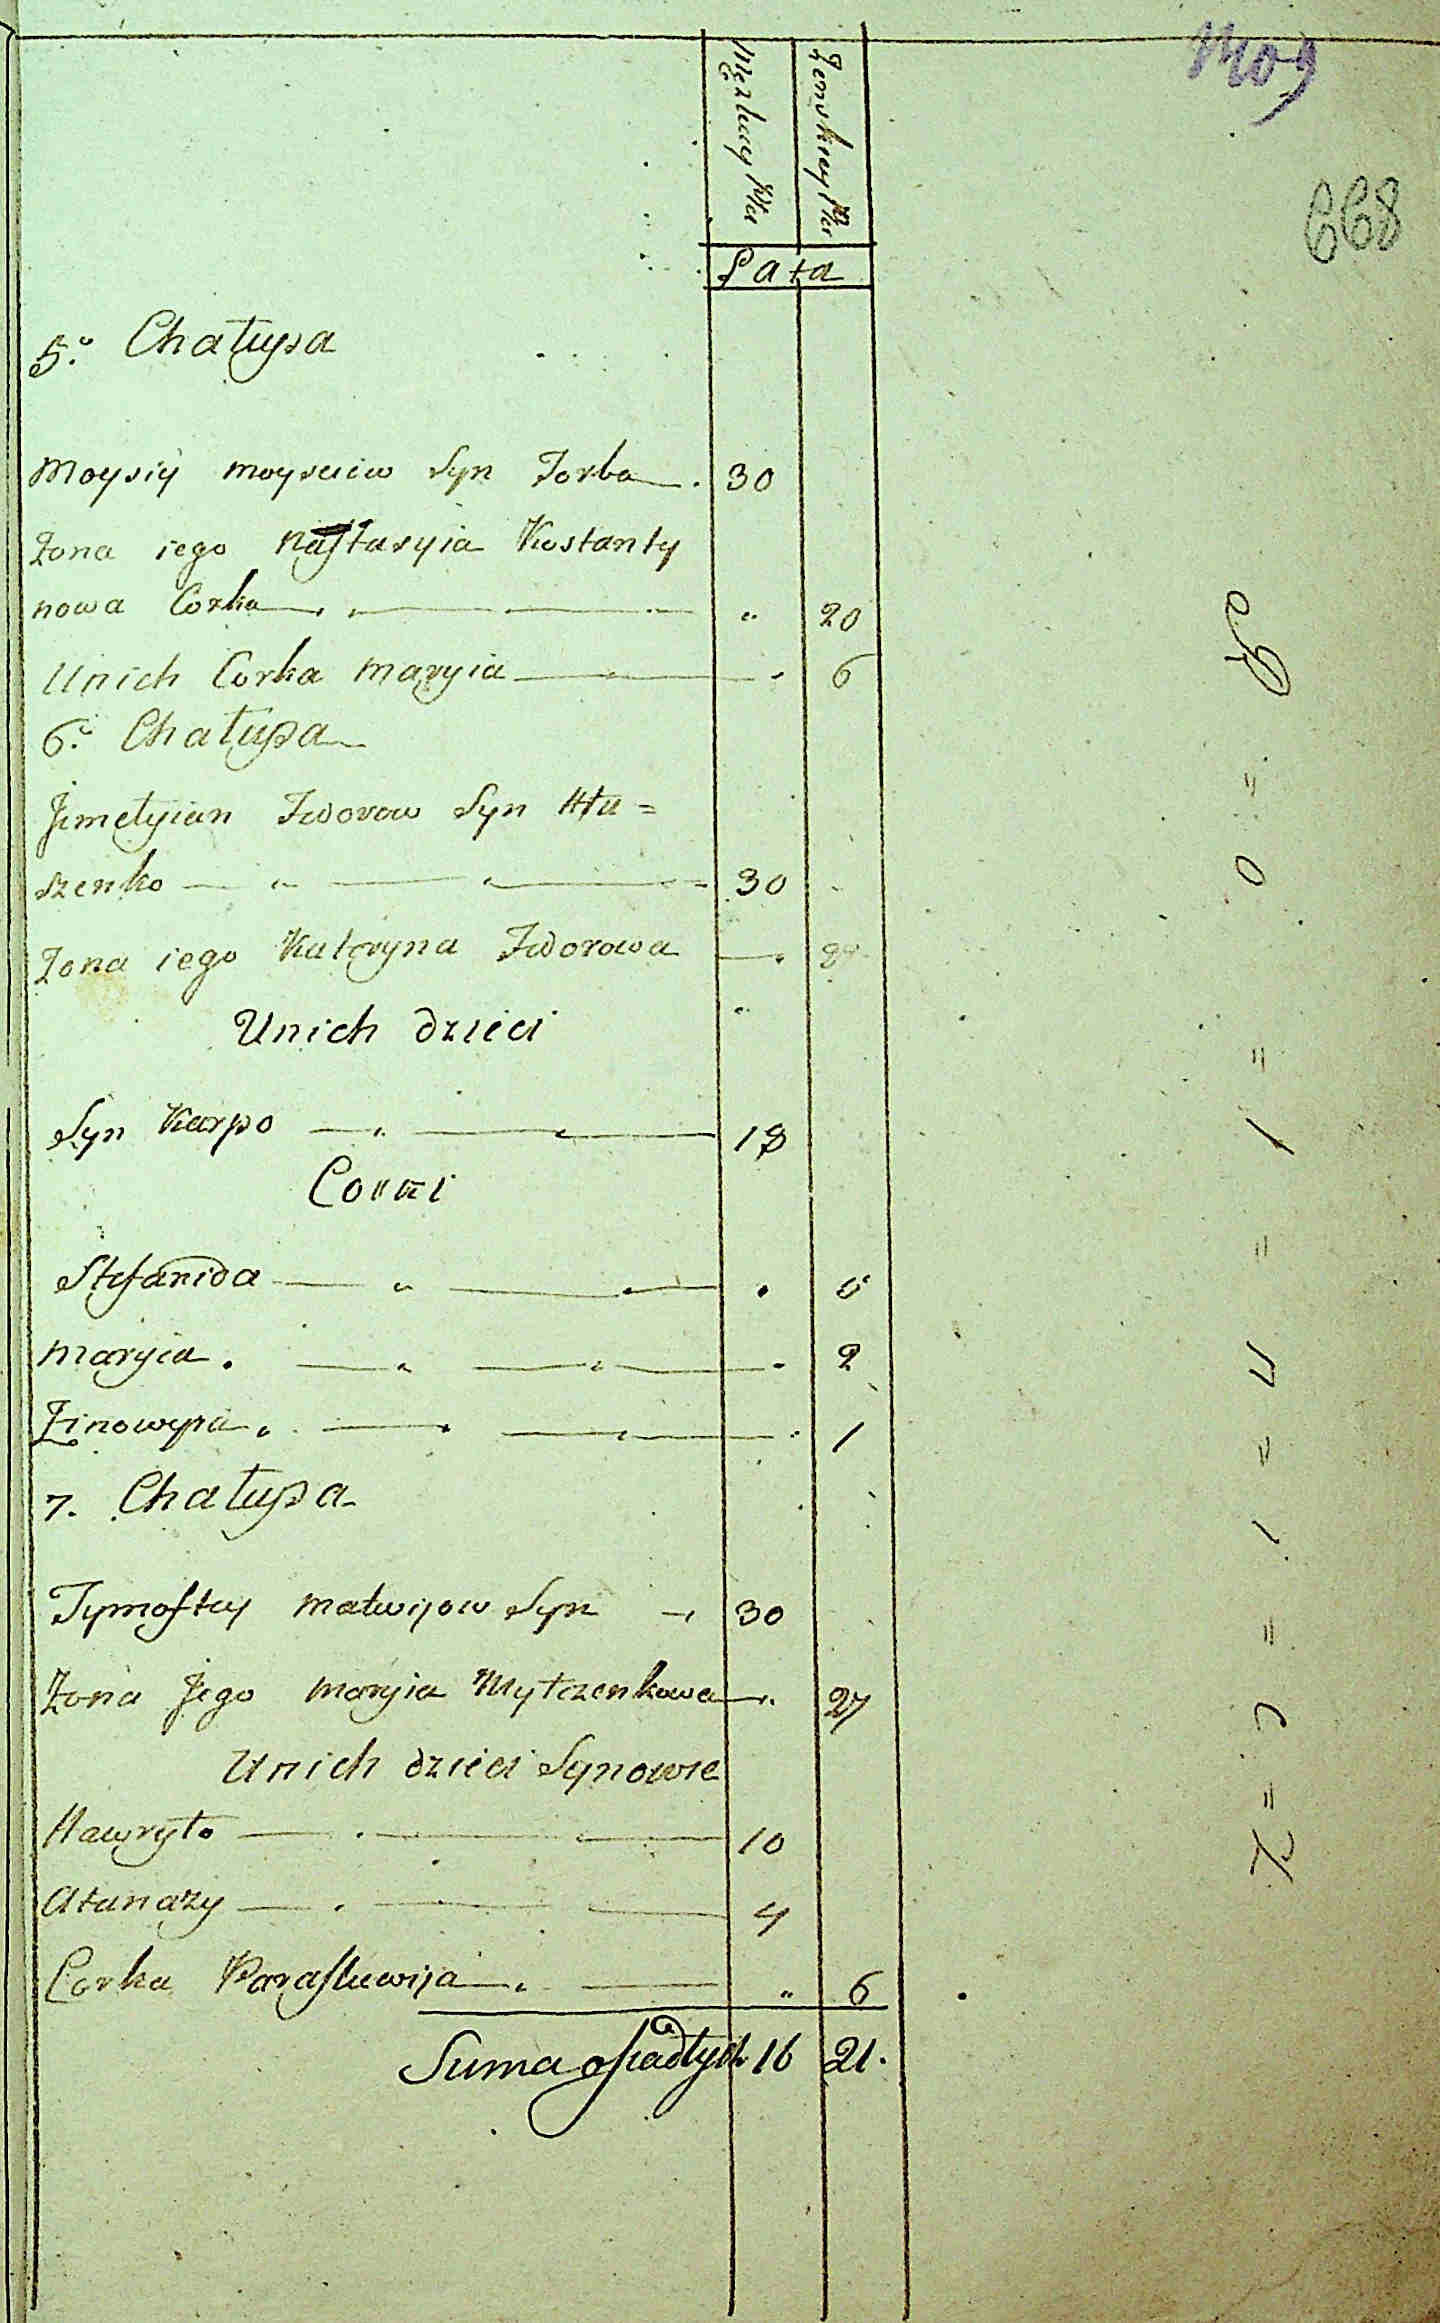 668
Męzkiey Płci
Zenskiey Płci
Lata
5.o Chałupa
Moysiy moysеiow Syn Torba 30
Zona iego Nastasyia Kostanty
nowa Corka 20
Unich Corka maryia 6
6.o Chałupa
Jemelyian Fedorow Syn Hłu=
szenko 30
Zona iego Kateryna Fedorowa
Unich dzieci
Syn Karpo 18
Corki
Stefanida
maryia 2
Zinowyia 1
7. Chałupa
Tymoftey matwijow Syn 30
Zona Jego maryia 27
Unich dzieci Synowie
Hawryło 10
Atanazy 4
Corka Paraskewija 6
Suma osiadłych 16 21.